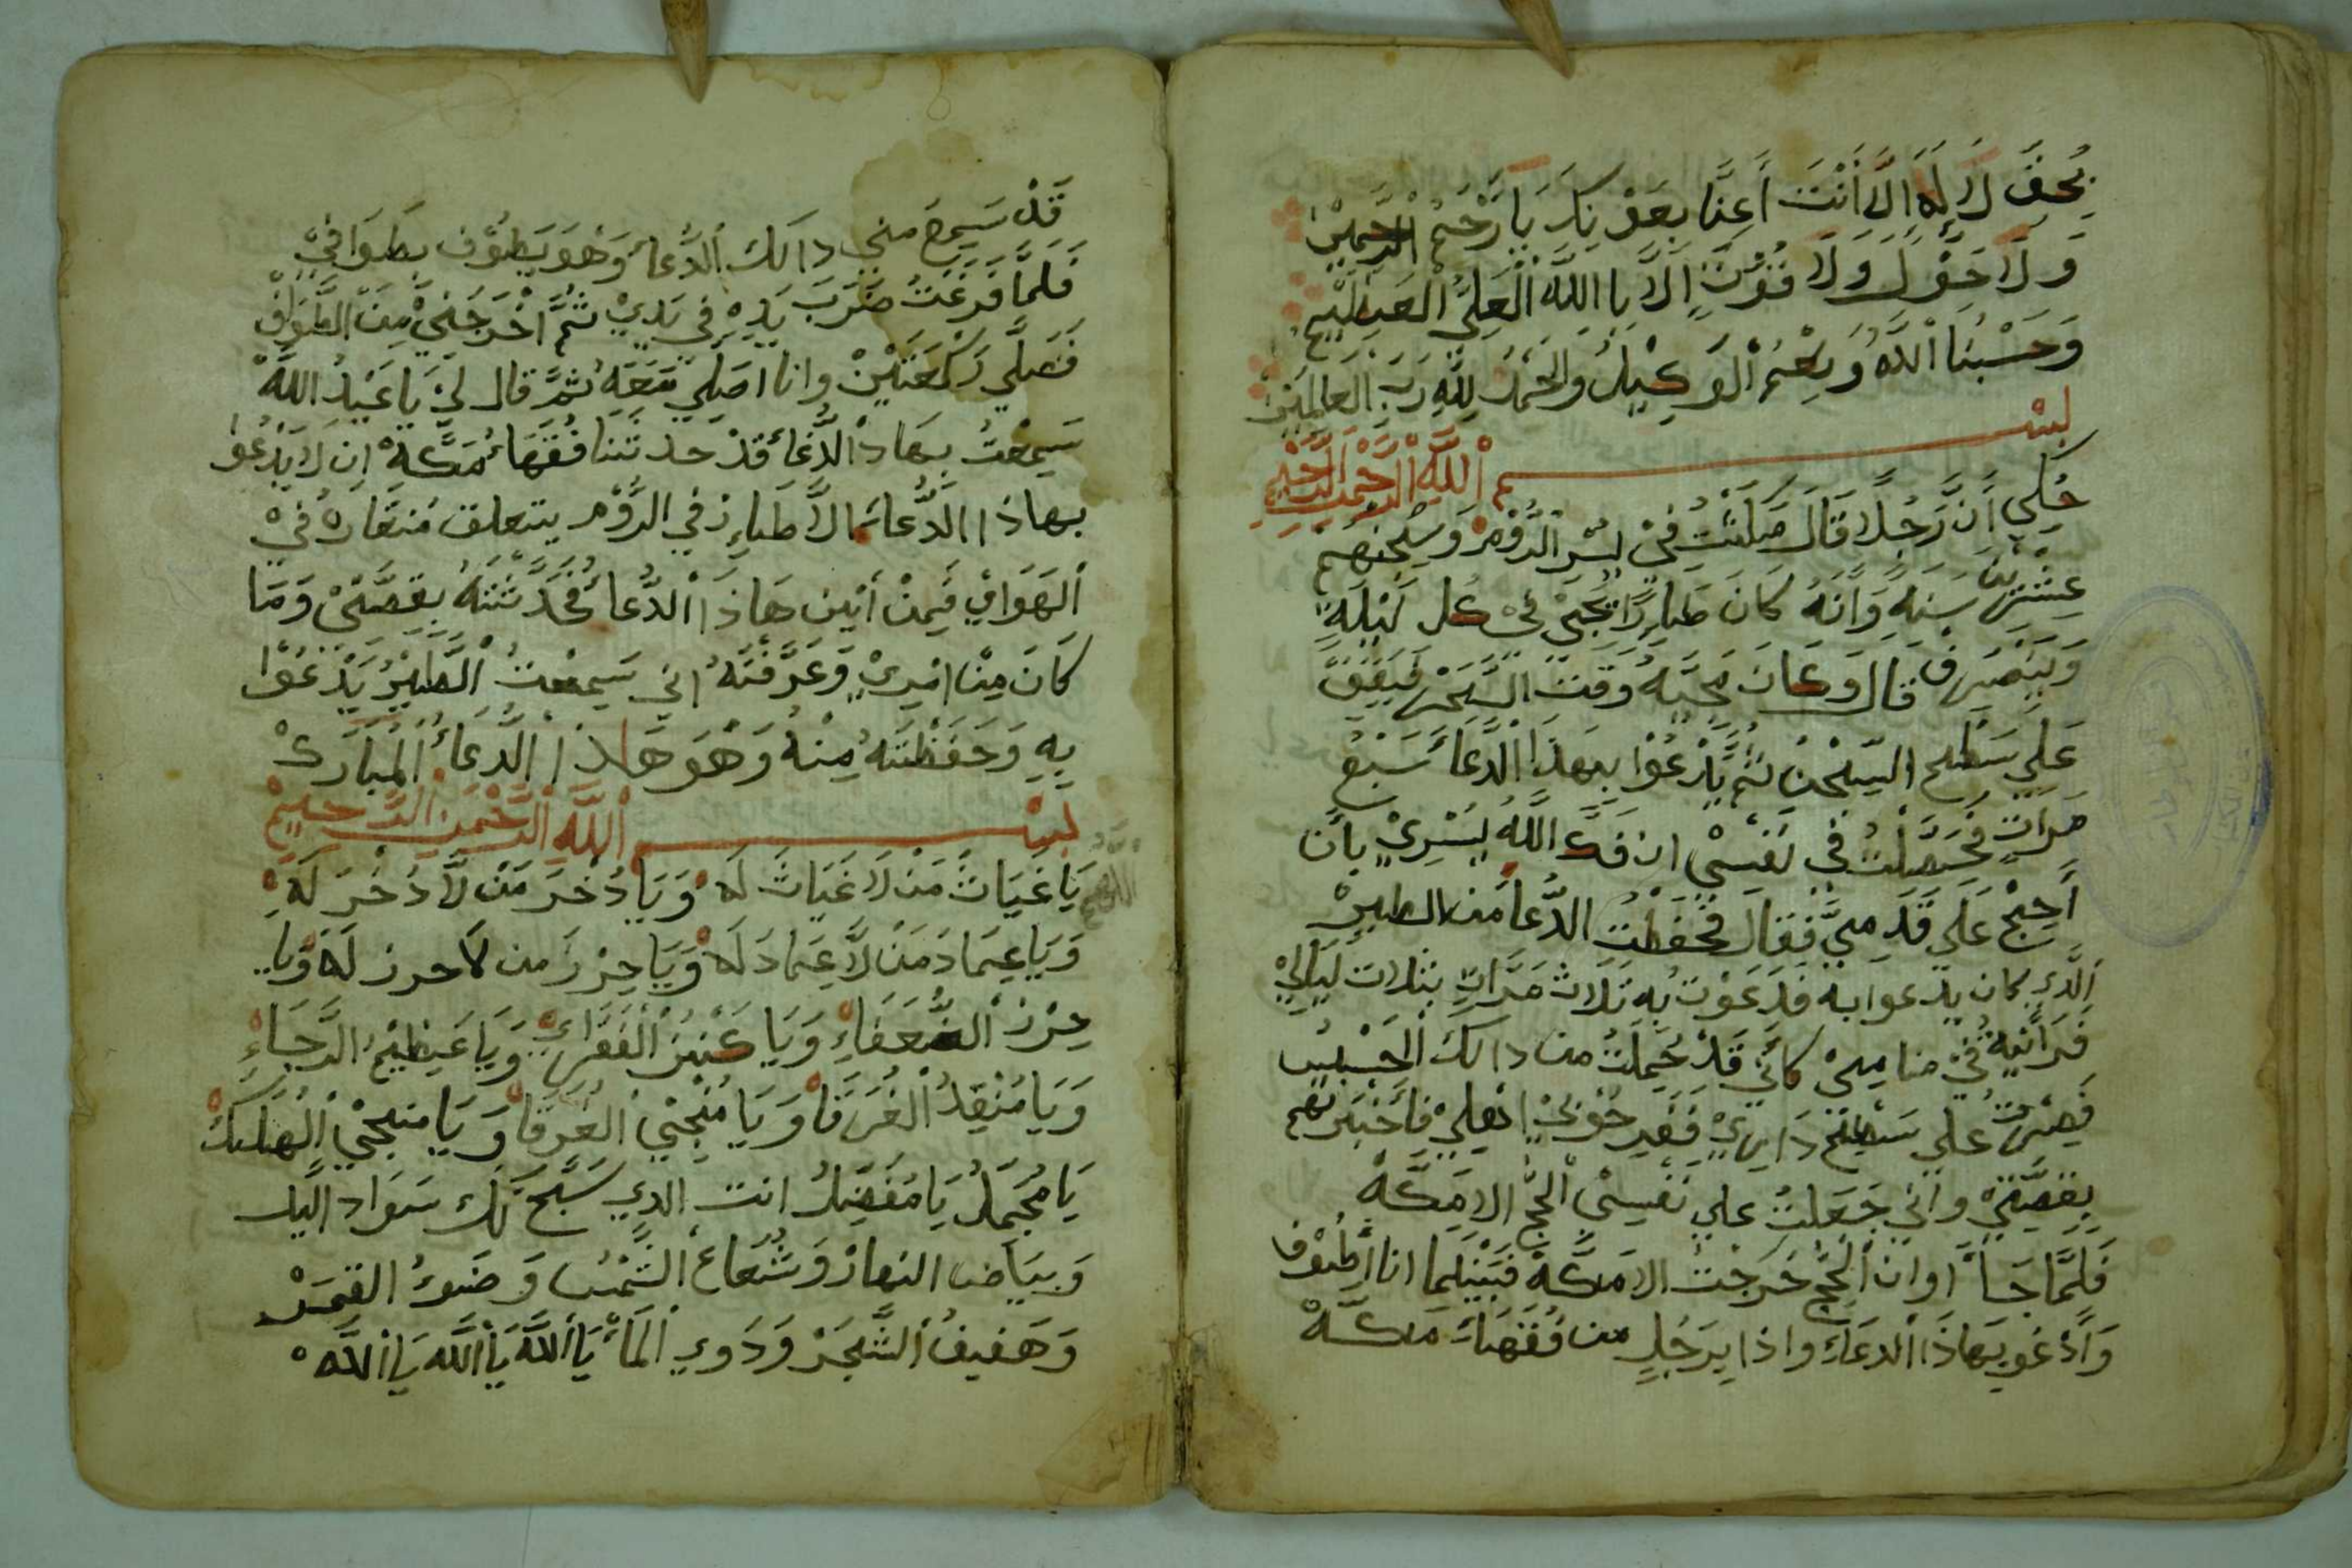 بِحَقِّ لَا إِلَهَ إِلَّا أَنْتَ أَعِنَّا بِعَوْنِكَ يَا أَرْحَمَ الرَّحِمِيْنَ
وَلَا حَوْلَ وَلَا قُوَّتَ إِلَّا بِاللَّهِ الْعَلِيِّ الْعَظِيْمِ
وَحَسْبُنَا اللَّهُ وَنِعْمَ الْوَكِيْلُ وَالْحَمْدُ لِلَّهِ رَبِّ الْعَالَمِيْنَ
بِسْمِ اللَّهِ الرَّحْمَنِ الرَّحِيْمِ
حُكِيَ أَنَّ رَجُلًا قَالَ مَكَثْتُ فِيْ يسْرِ الرُّوْمِ وَسِجْنِهِمْ
عِشْرِيْنَ سَنَةٍ وَأَنَّهُ كَانَ طَايِرًا يَجِيْ فِيْ كُلِّ لَيْلَةٍ
وَيَنْصَرِفْ قَالَ وَكَانَ مَجِيَّهُ وَقْتَ السَّحَرِ فَيَقِفُ
عَلَى سَطْحِ السِّجْنِ ثُمَّ يَدْعُوْا بِهَذَا الدُّعَاءِ سَبْعُ
مَرَاتٍ فَحَصَلْتُ فِي نَفْسِيْ ان فَكَّ اللَّهُ يُسْرِيْ بِأَن
أَحِجُّ عَلَى قَدَمِيَّ فَقَالَ فَحَفَظْتُ الدُّعَا مَن الطيرْ
الَّذِي كان يدعوا به فَدَعَوْت بِهِ ثَلَاث مَرَّاتٍ بثلاث لَيَالِيْ
فَرَأَيْتُهُ فِيْ منامِيْ كأَنِّي قَدْ حُمِلْتُ من دالك الْحَبْسِ
فَصِرْتُ عَلَى سَطْحِ دَارِيْ فَفَرِحُوْ بِيْ اهْلِيْ فَأَخْبَرْتُهُمْ
بِقِصَّتِيْ وأَنِّي جَعَلْتُ عَلَى نَفْسِيْ الْحَجَّ الا مَكَّةْ
فَلَمَّا جَاءَ أوان الْحَجِّ خَرَجْتُ الا مَكَّةْ فَبَيْنَمَا انا أَطُوْف
وَأَدْعُو بِهَاذَا الدُّعَاءِ واذا بِرَجُلٍ من فُقَهَاءِ مَكَّةْ
قَدْ سَمِعَ مِنِّي دالك الدُّعَاءَ وَهْوَ يَطُوْف بِطَوَافِيْ
فَلَمَّا فَرَغْتُ ضَرَبَ يَدِهِ فِي يَدِيْ ثُمَّ أَخْرَجَنِيْ مِنَ الطَّوَافْ
فَصَلَّى رَكْعَتَيْنْ وانا اصَلِّي مَعَهُ ثُمَّ قال لِيْ يَا عَبْدُ اللَّهْ
سَمِعْتُ بِهَاذَا الدُّعَاءَ قَدْ حدثَنَا فُقَهَاءُ مَكَّةْ ان لَا يَدْعُوا
بهاذا الدُّعَاءِ الَّا طَايِرْ فِي الرُّوْمِ يتعلق مُنقَارهُ فِيْ
الْهَوَاءِ فَمِنْ أَيْن هَاذَا الدُّعَاءُ فَحَدَّثْتَهُ بِقِصَّتِيْ وَمَا
كَانَ مِنْ امْرِيْ وَعَرَّفْتَهُ انِّي سَمِعْتُ الطَّيْرُ يَدْعُوْا
بِهِ وَحَفَظْتَهُ مِنْهُ وَهْوَ هَاذَا الدُّعَاءُ الْمُبَارَكْ
بِسْمِ اللَّهِ الرَّحْمَنِ الرَّحِيمْ
اللهم يَا غَيَاثَ مَنْ لَا غَيَاثَ لَهُ وَيَا دُخْرَ مَنْ لَّا دُخْرَ لَهُ
وَيَا عِمَادَ مَنْ لَّا عِمَادَ لَهُ وَيَا حِرْزَ من لا حرز لَهُ وَيَا
حِرْزَ الضُّعَفَاءِ وَيَا كَنْزَ الْفُقَرَاءِ وَيَا عَظِيْمُ الرَّجَاءِ
وَيَا مُنْقِدُ الْغَرَقَا وَيَا مُنْجِيْ الْغَرَقَا وَيَا منجي الْهَلَكْ
يَا مُجَمِّلُ يَا مُفَضِّلُ انت الدي سَبَّحَ لَك سَوَاد اليل
وَبيَاض النهارْ وَشُعَاعُ الشَّمْسِ وَضَوْءُ القمَرْ
وَهَفِيفُ الشَّجَرْ وَدَوي الْمَاءْ يَا أَللَّهْ يَا أَللَّه يَا أَللَّهْ